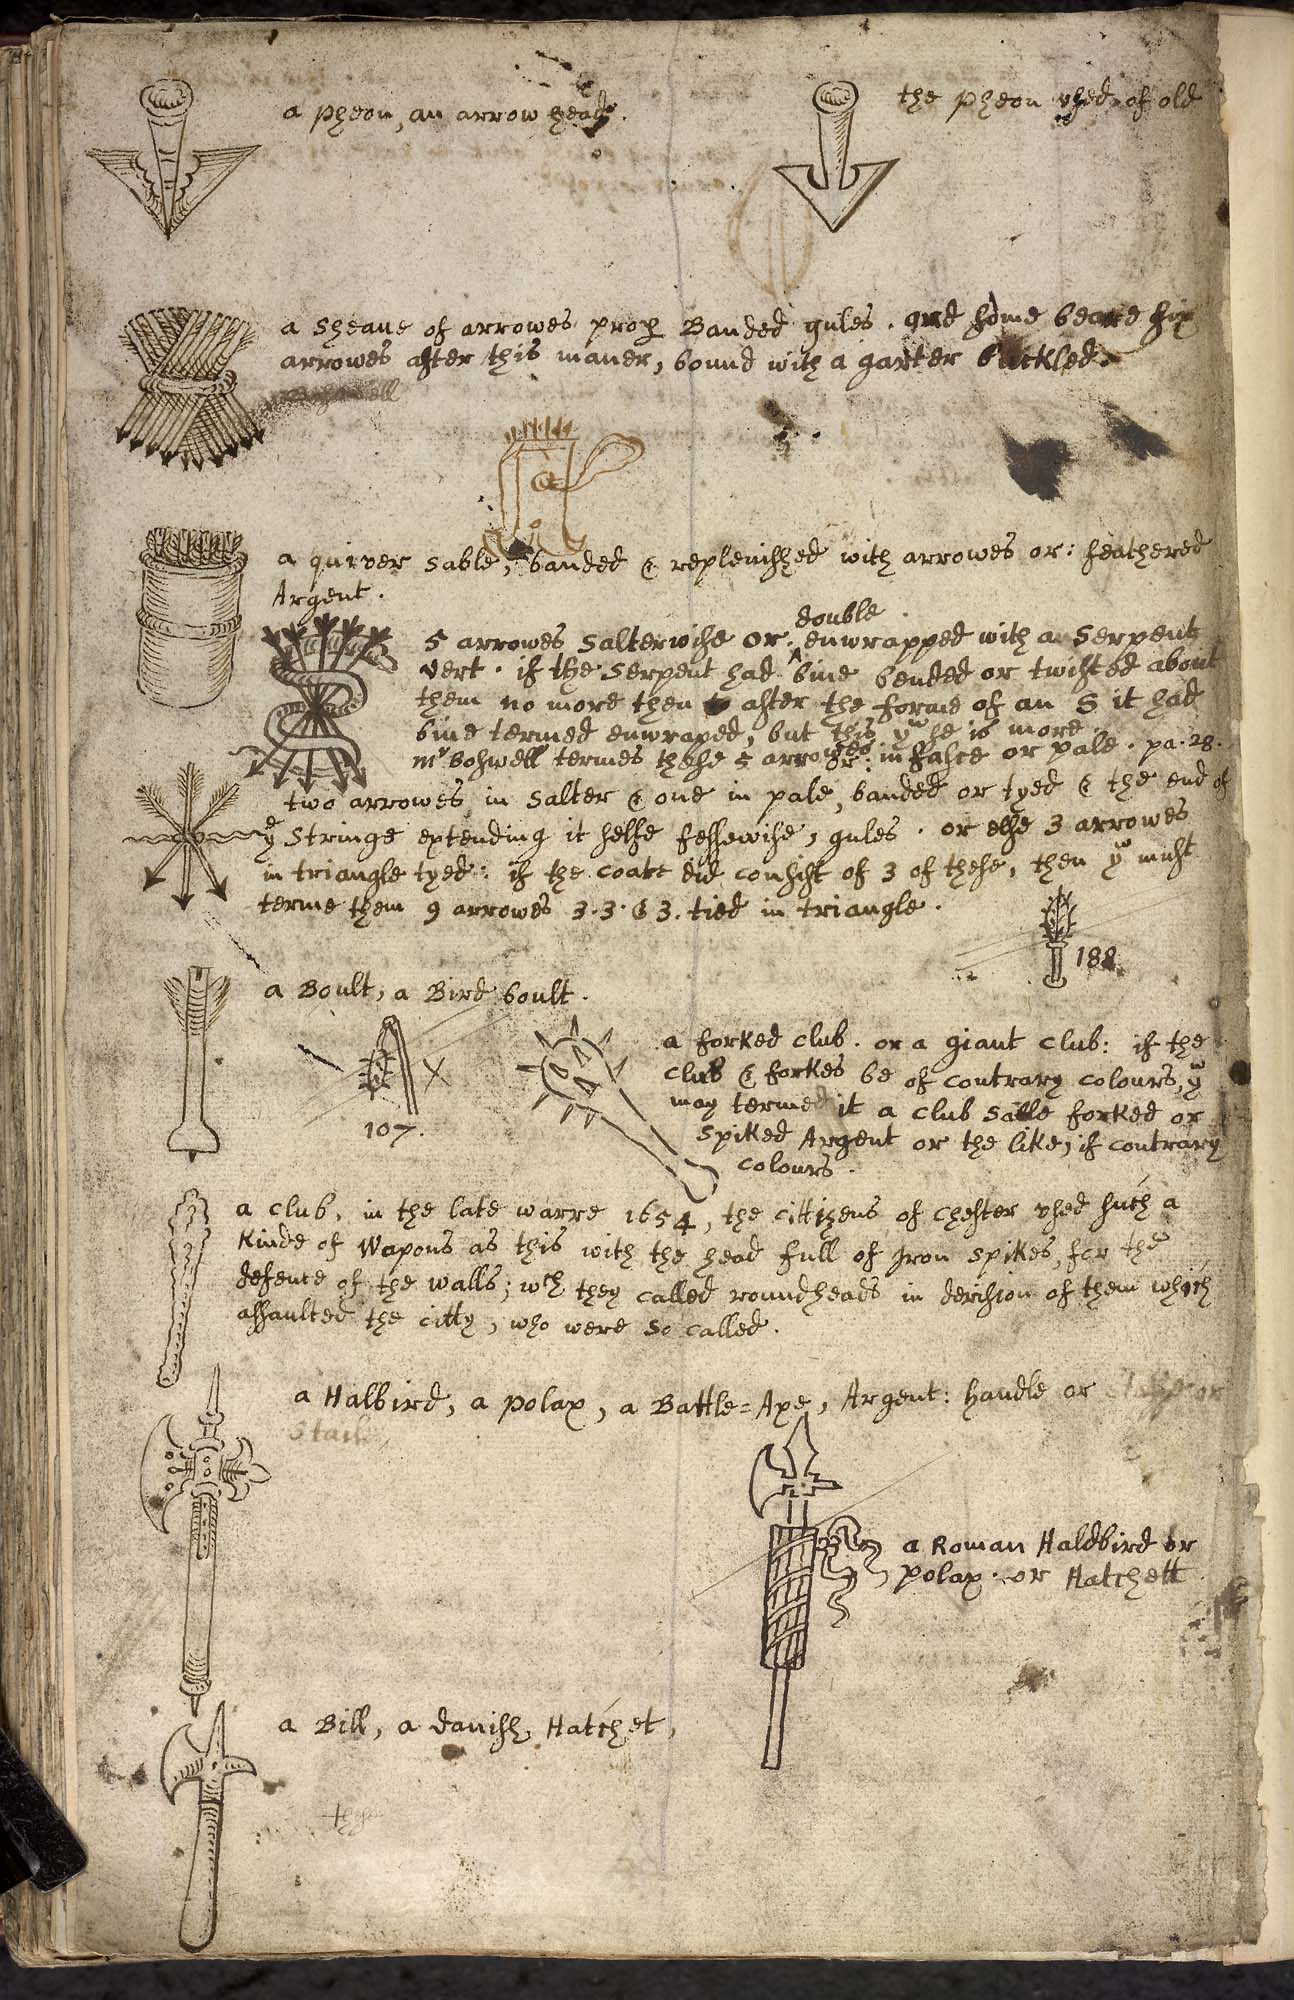 a pheon, an arrow head.
the pheon vsed of old
a Sheaue of arrowes prop Banded gules. and some beare six
arrowes after this maner, bound with a garter buckled.
a quiver Sable, banded & replenished with arrowes or: feathered
Argent.
double
5 arrowes Salterwise or: enwrapped with a Serpent
vert. if the Serpent had bine bended or twisted about
them no more then after the forme of an S it had
bine termed enwraped, but this yw se is more
mr boswell termes these 5 arrowes or: in fasce or pale. pa. 28.
two arrowes in Salter & one in pale, banded or tyed & the end of
ye Stringe extending it selfe fessewise, gules. or else 3 arrowes
in triangle tyed: if the coate did consist of 3 of these, then yw must
terme them 9 arrowes 3. 3. & 3. tied in triangle.
188
a Boult, a Bird boult.
107.
a forked club. or a giant club: if the
club & forkes be of contrary colours, yw
may termed it a club Sable forked or
Spiked Argent or the like, if contrary
colours.
a club, in the late warre 1654, the cittizens of chester vsed such a
kinde of wapons as this with the head full of Iron spikes, for the
defence of the walls; wch they called roundheads in derision of them which
assaulted the citty, who were so called.
a Halbird, a polax, a Battle=Axe, Argent: handle or
Staile
a Roman Haldbird or
polax. or Hatchett
a Bill, a danish Hatchet,